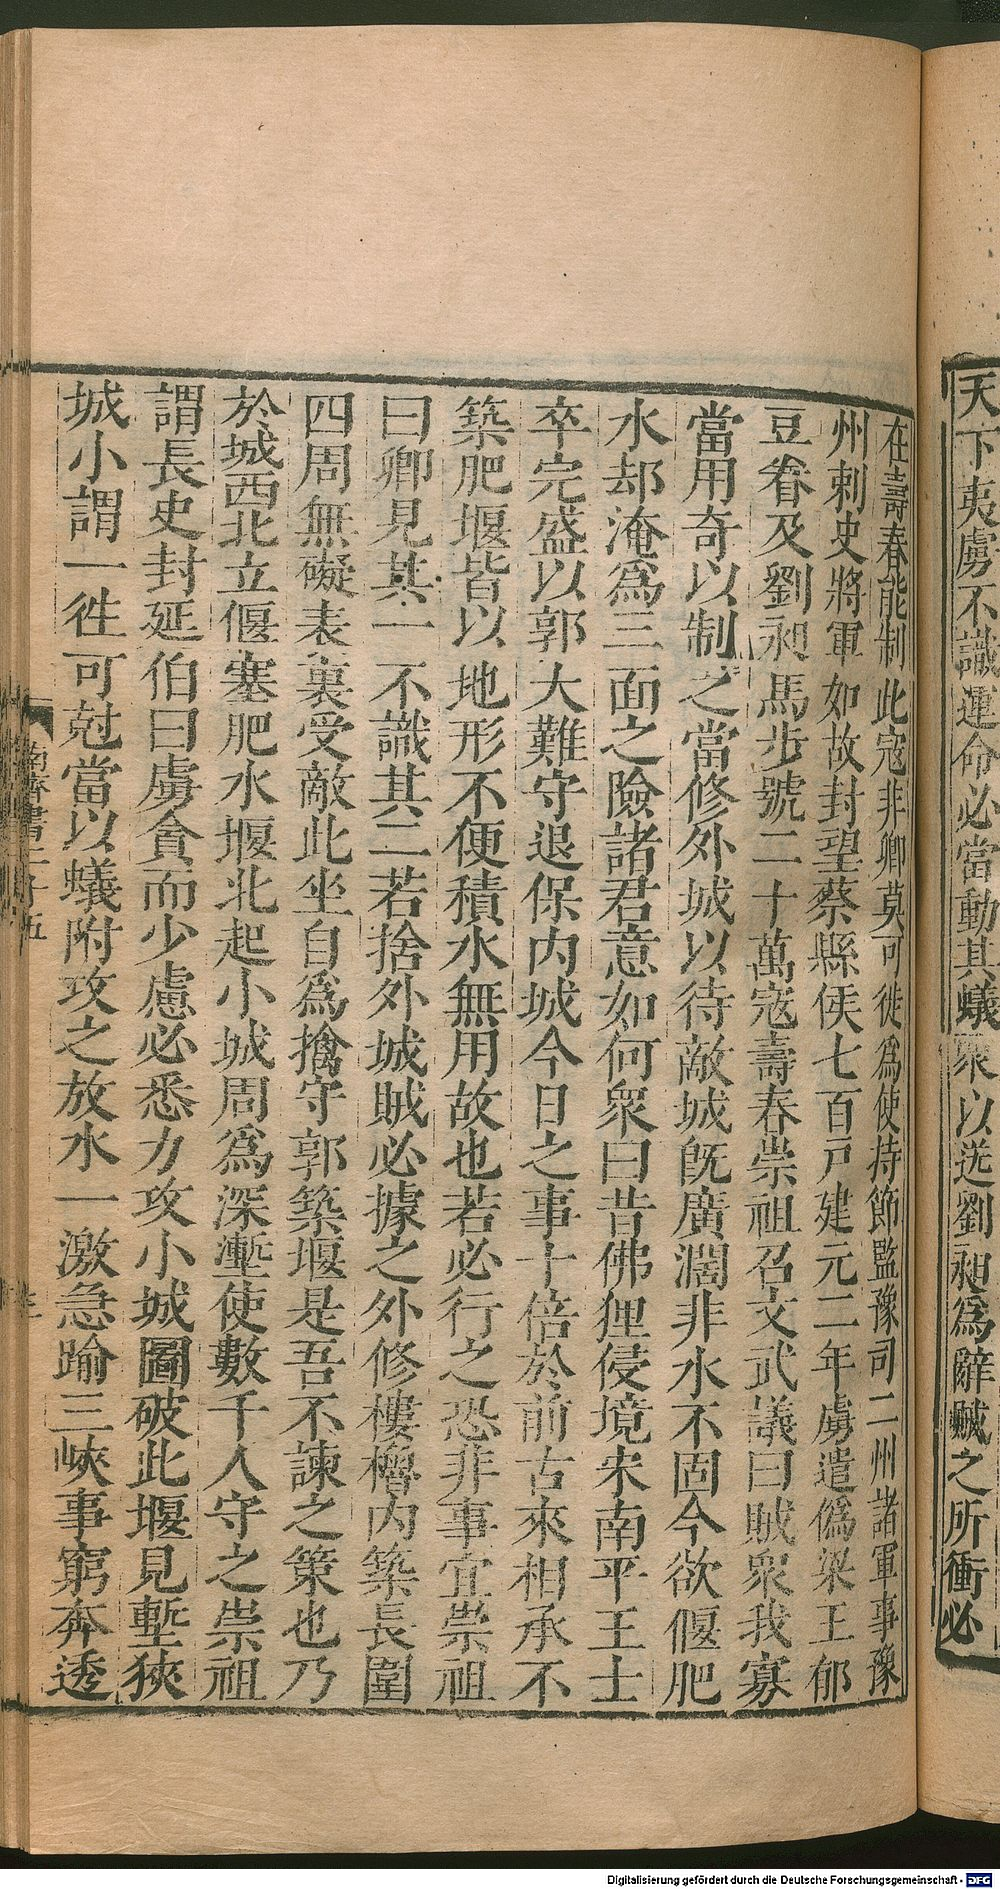 天下夷虜不識運命必當動其蟻衆以送劉昶爲辭賊之所衝必
在壽春能制此寇非卿莫可徙爲使持節監豫司二州諸軍事豫
州刺史將軍如故封望蔡縣侯七百戸建元二年虜遣僞梁王郁
豆眷及劉昶馬步號二十萬寇壽春崇祖召文武議曰賊衆我寡
當用奇以制之當修外城以待敵城既廣濶非水不固今欲偃肥
水却淹爲三面之險諸君意如何衆曰昔佛狸侵境宋南平王士
卒完盛以郭大難守退保内城今日之事十倍於前古來相承不
築肥堰皆以地形不便積水無用故也若必行之恐非事宜崇祖
曰卿見其一不識其二若捨外城賊必據之外修樓櫓内築長圍
四周無礙表裏受敵此坐自爲擒守郭築堰是吾不諫之策也乃
於城西北立偃塞肥水堰北起小城周爲深壍使數千人守之崇祖
謂長史封延伯曰虜貪而少慮必悉力攻小城圖破此堰見塹狹
城小謂一徃可尅當以蟻附攻之放水一激急踰三峽事窮奔透
南齊書二十五
Digitalisierung gefördert durch die Deutsche Forschungsgemeinschaft - DFG